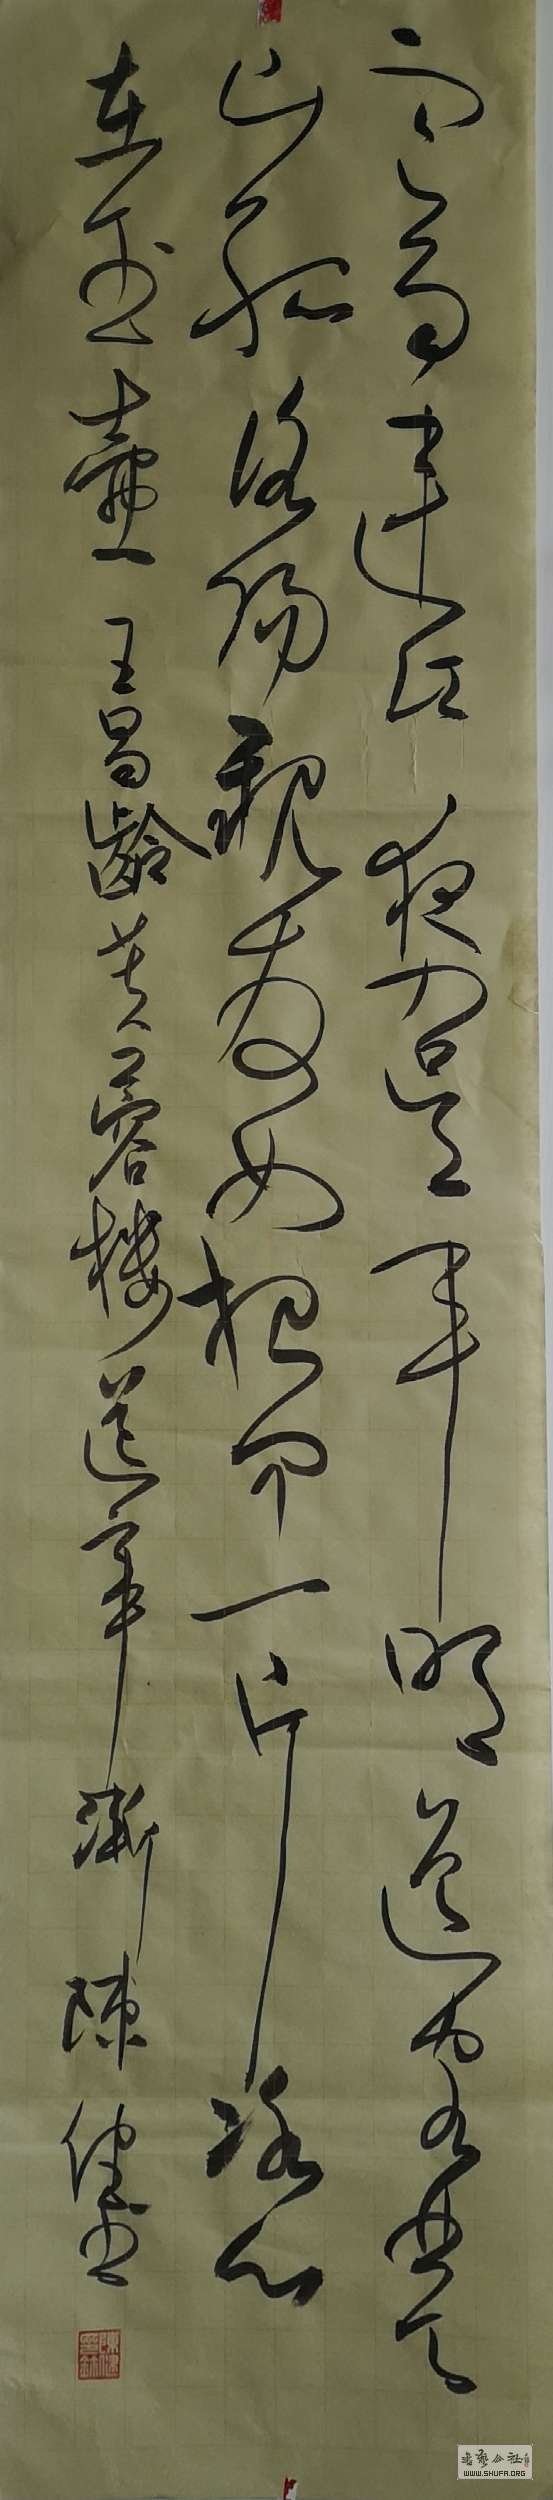 寒雨連江夜入吳平明送客楚
山孤洛陽親友如相問一片冰心
在玉壺 王昌齡芙蓉樓送辛漸 陳健書
書藝公社
WWW.SHUFA.ORG